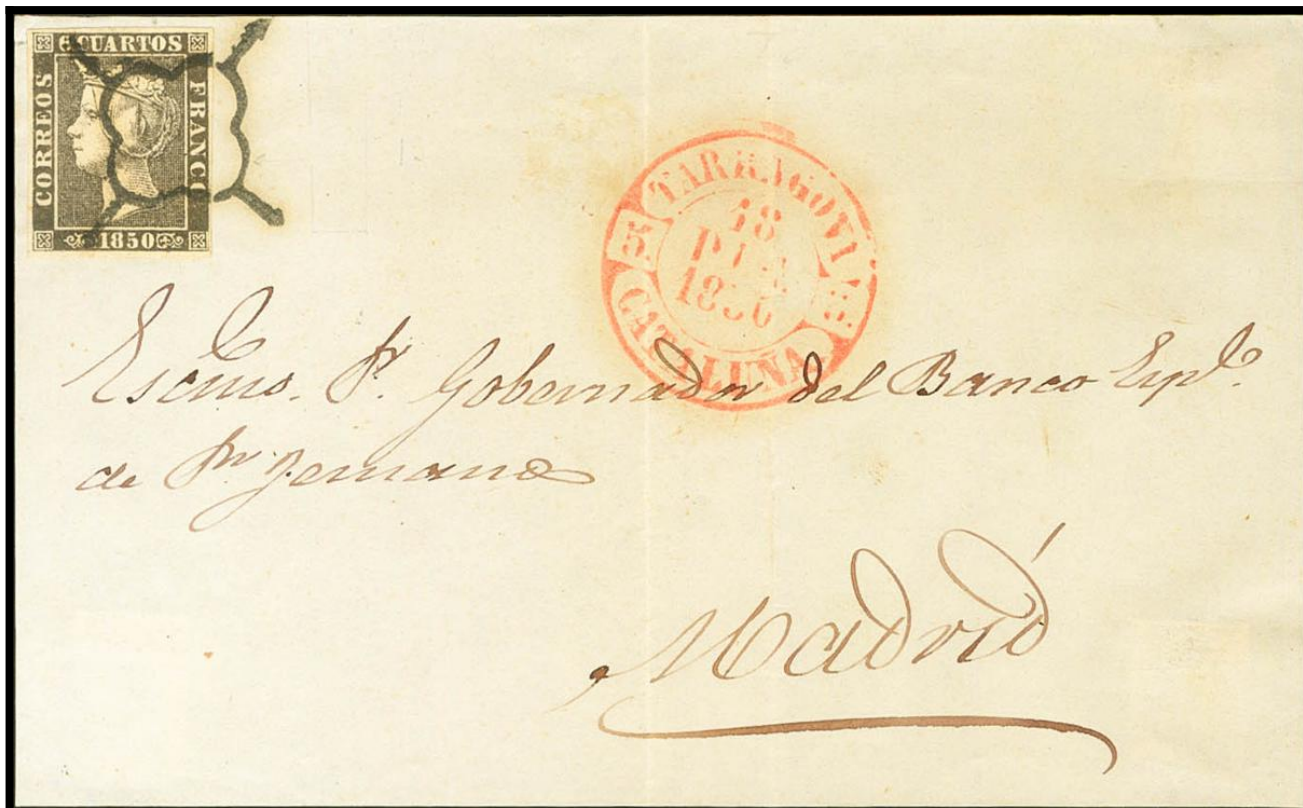 6 CUARTOS
CORREOS
FRANCO
1850
TARRAGONA
18
DIC
1850
CATALUÑA
Escmo. Sr. Gobernador del Banco Espl.
de Sn. Fernando
Madrid